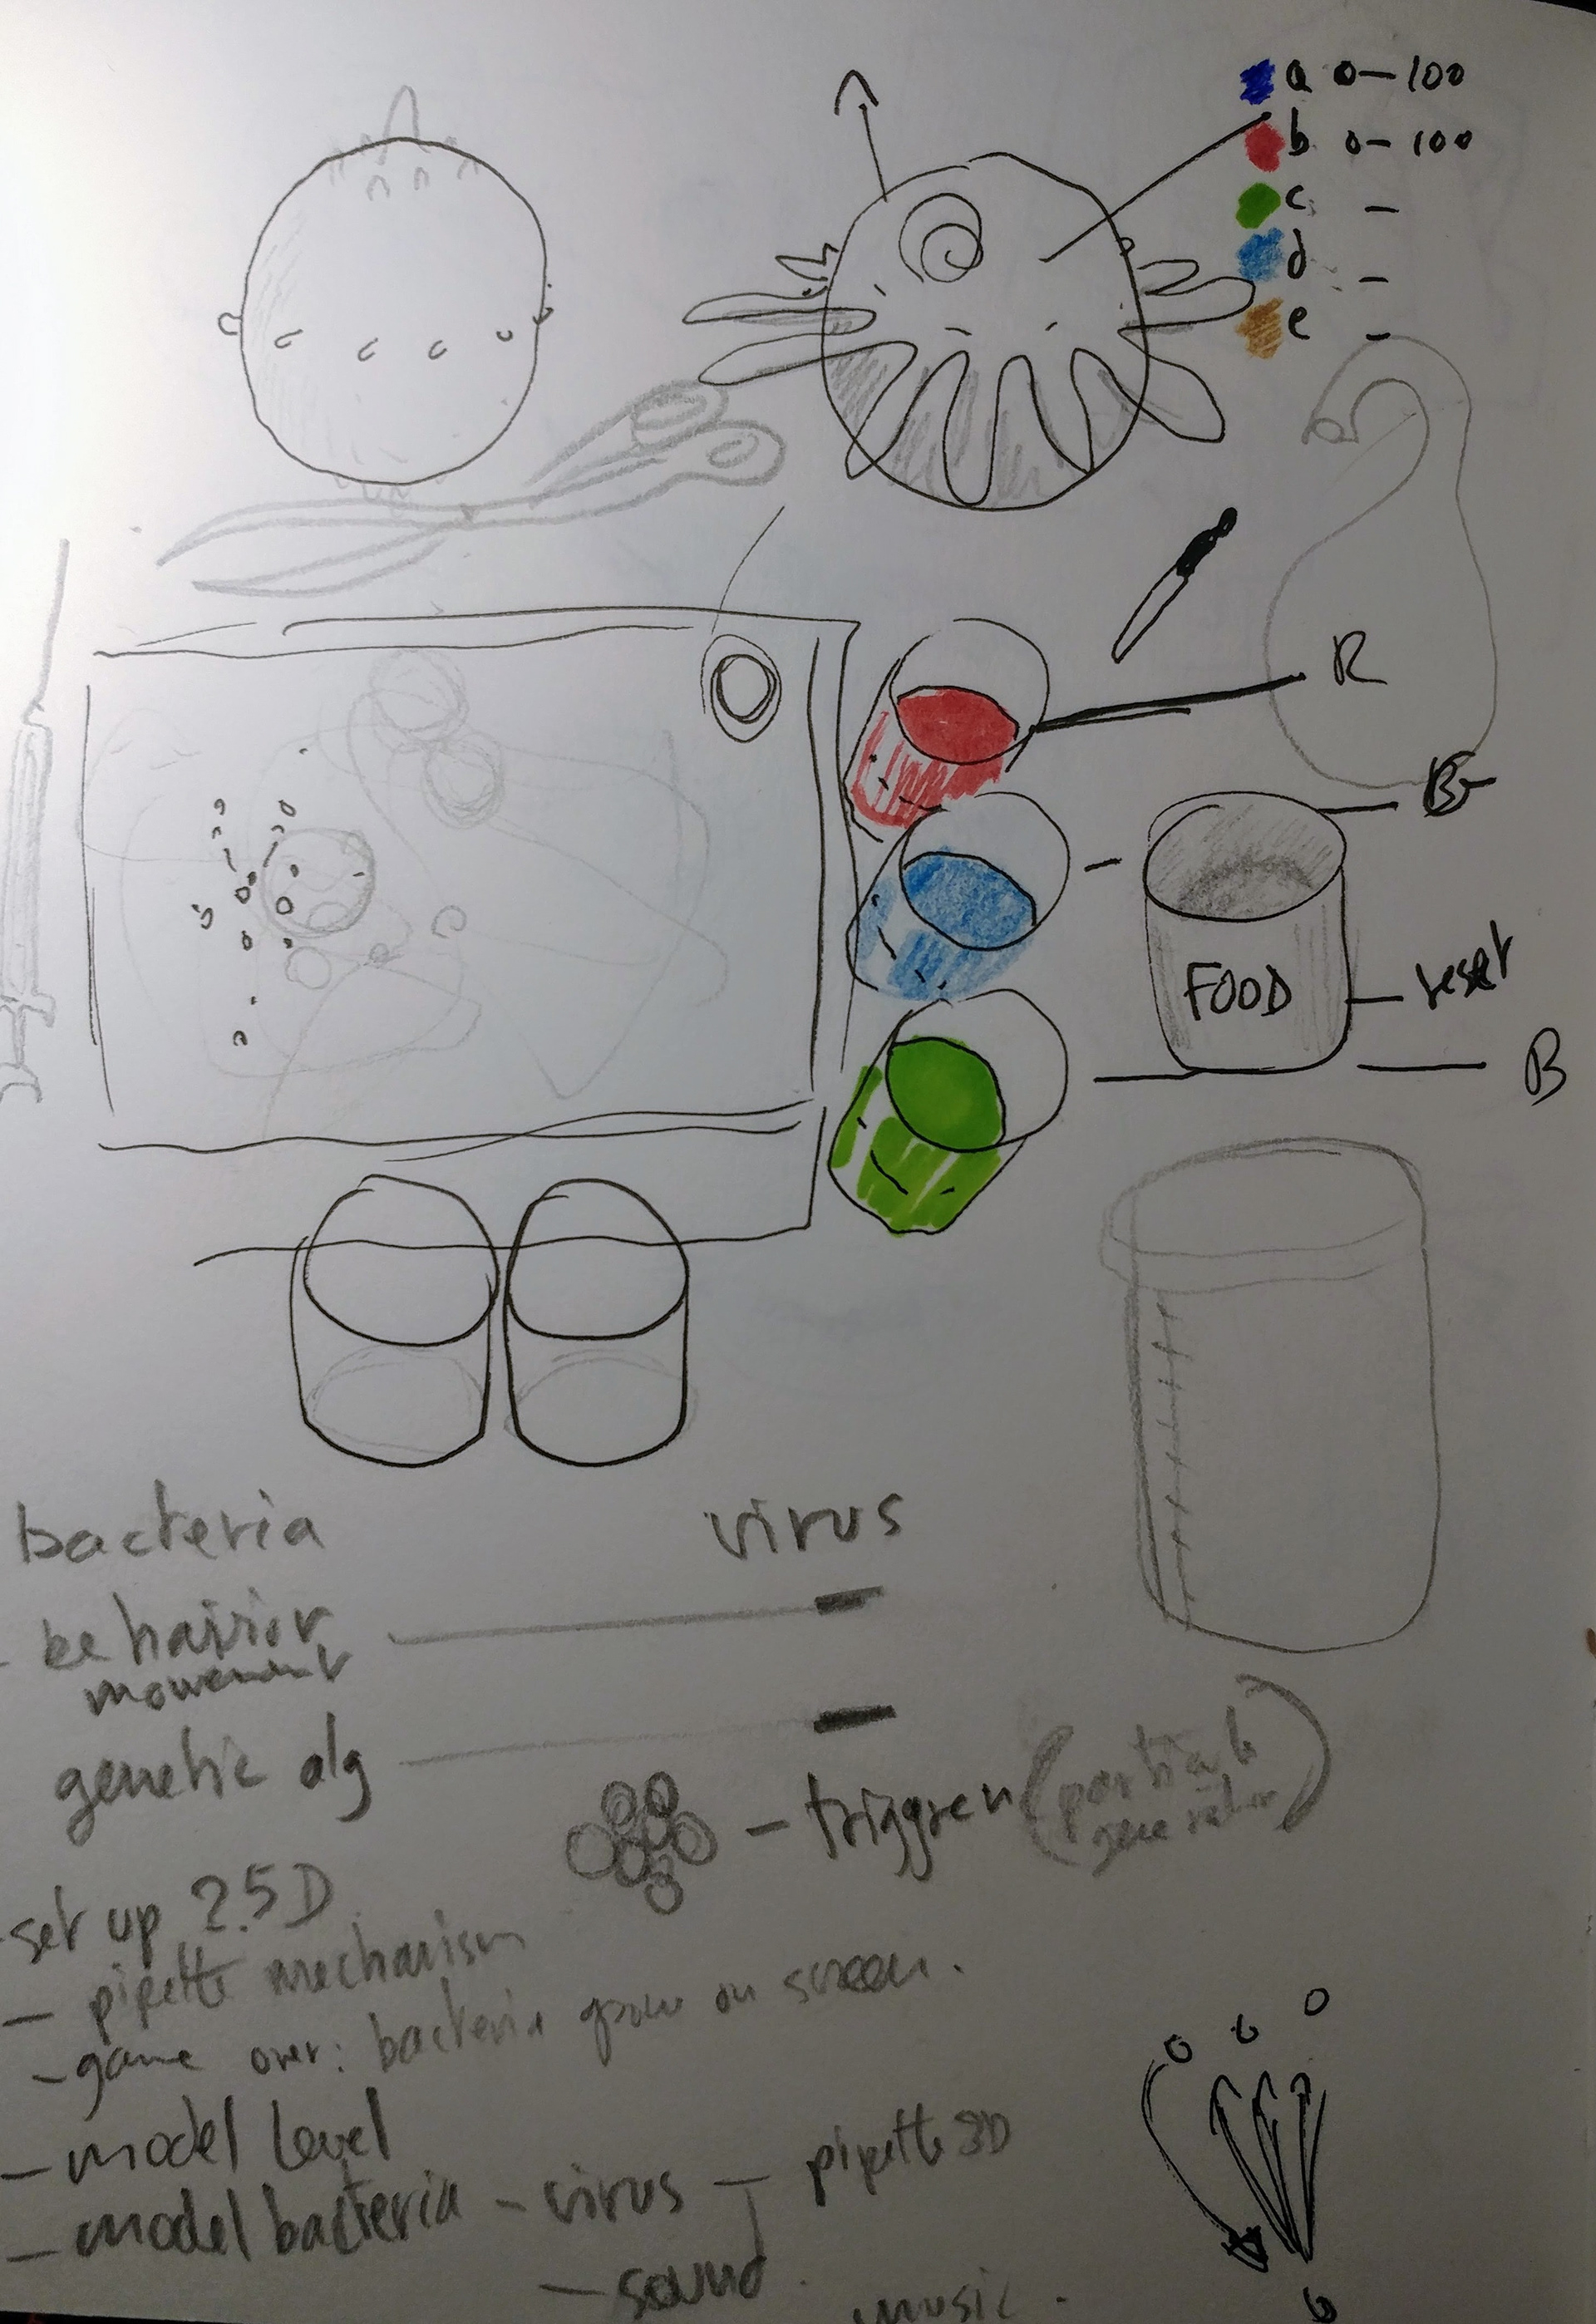 a 0—100
b 0—100
c —
d —
e —
R
FOOD
reset
B
bacteria virus
behaivior
movement
genetic alg
— triggren (particle generator)
- set up 2.5D
— pipette mechanism
- game over: bacteria grow on screen.
— model level
— model bacteria - virus — pipette 3D
— sound.
music.